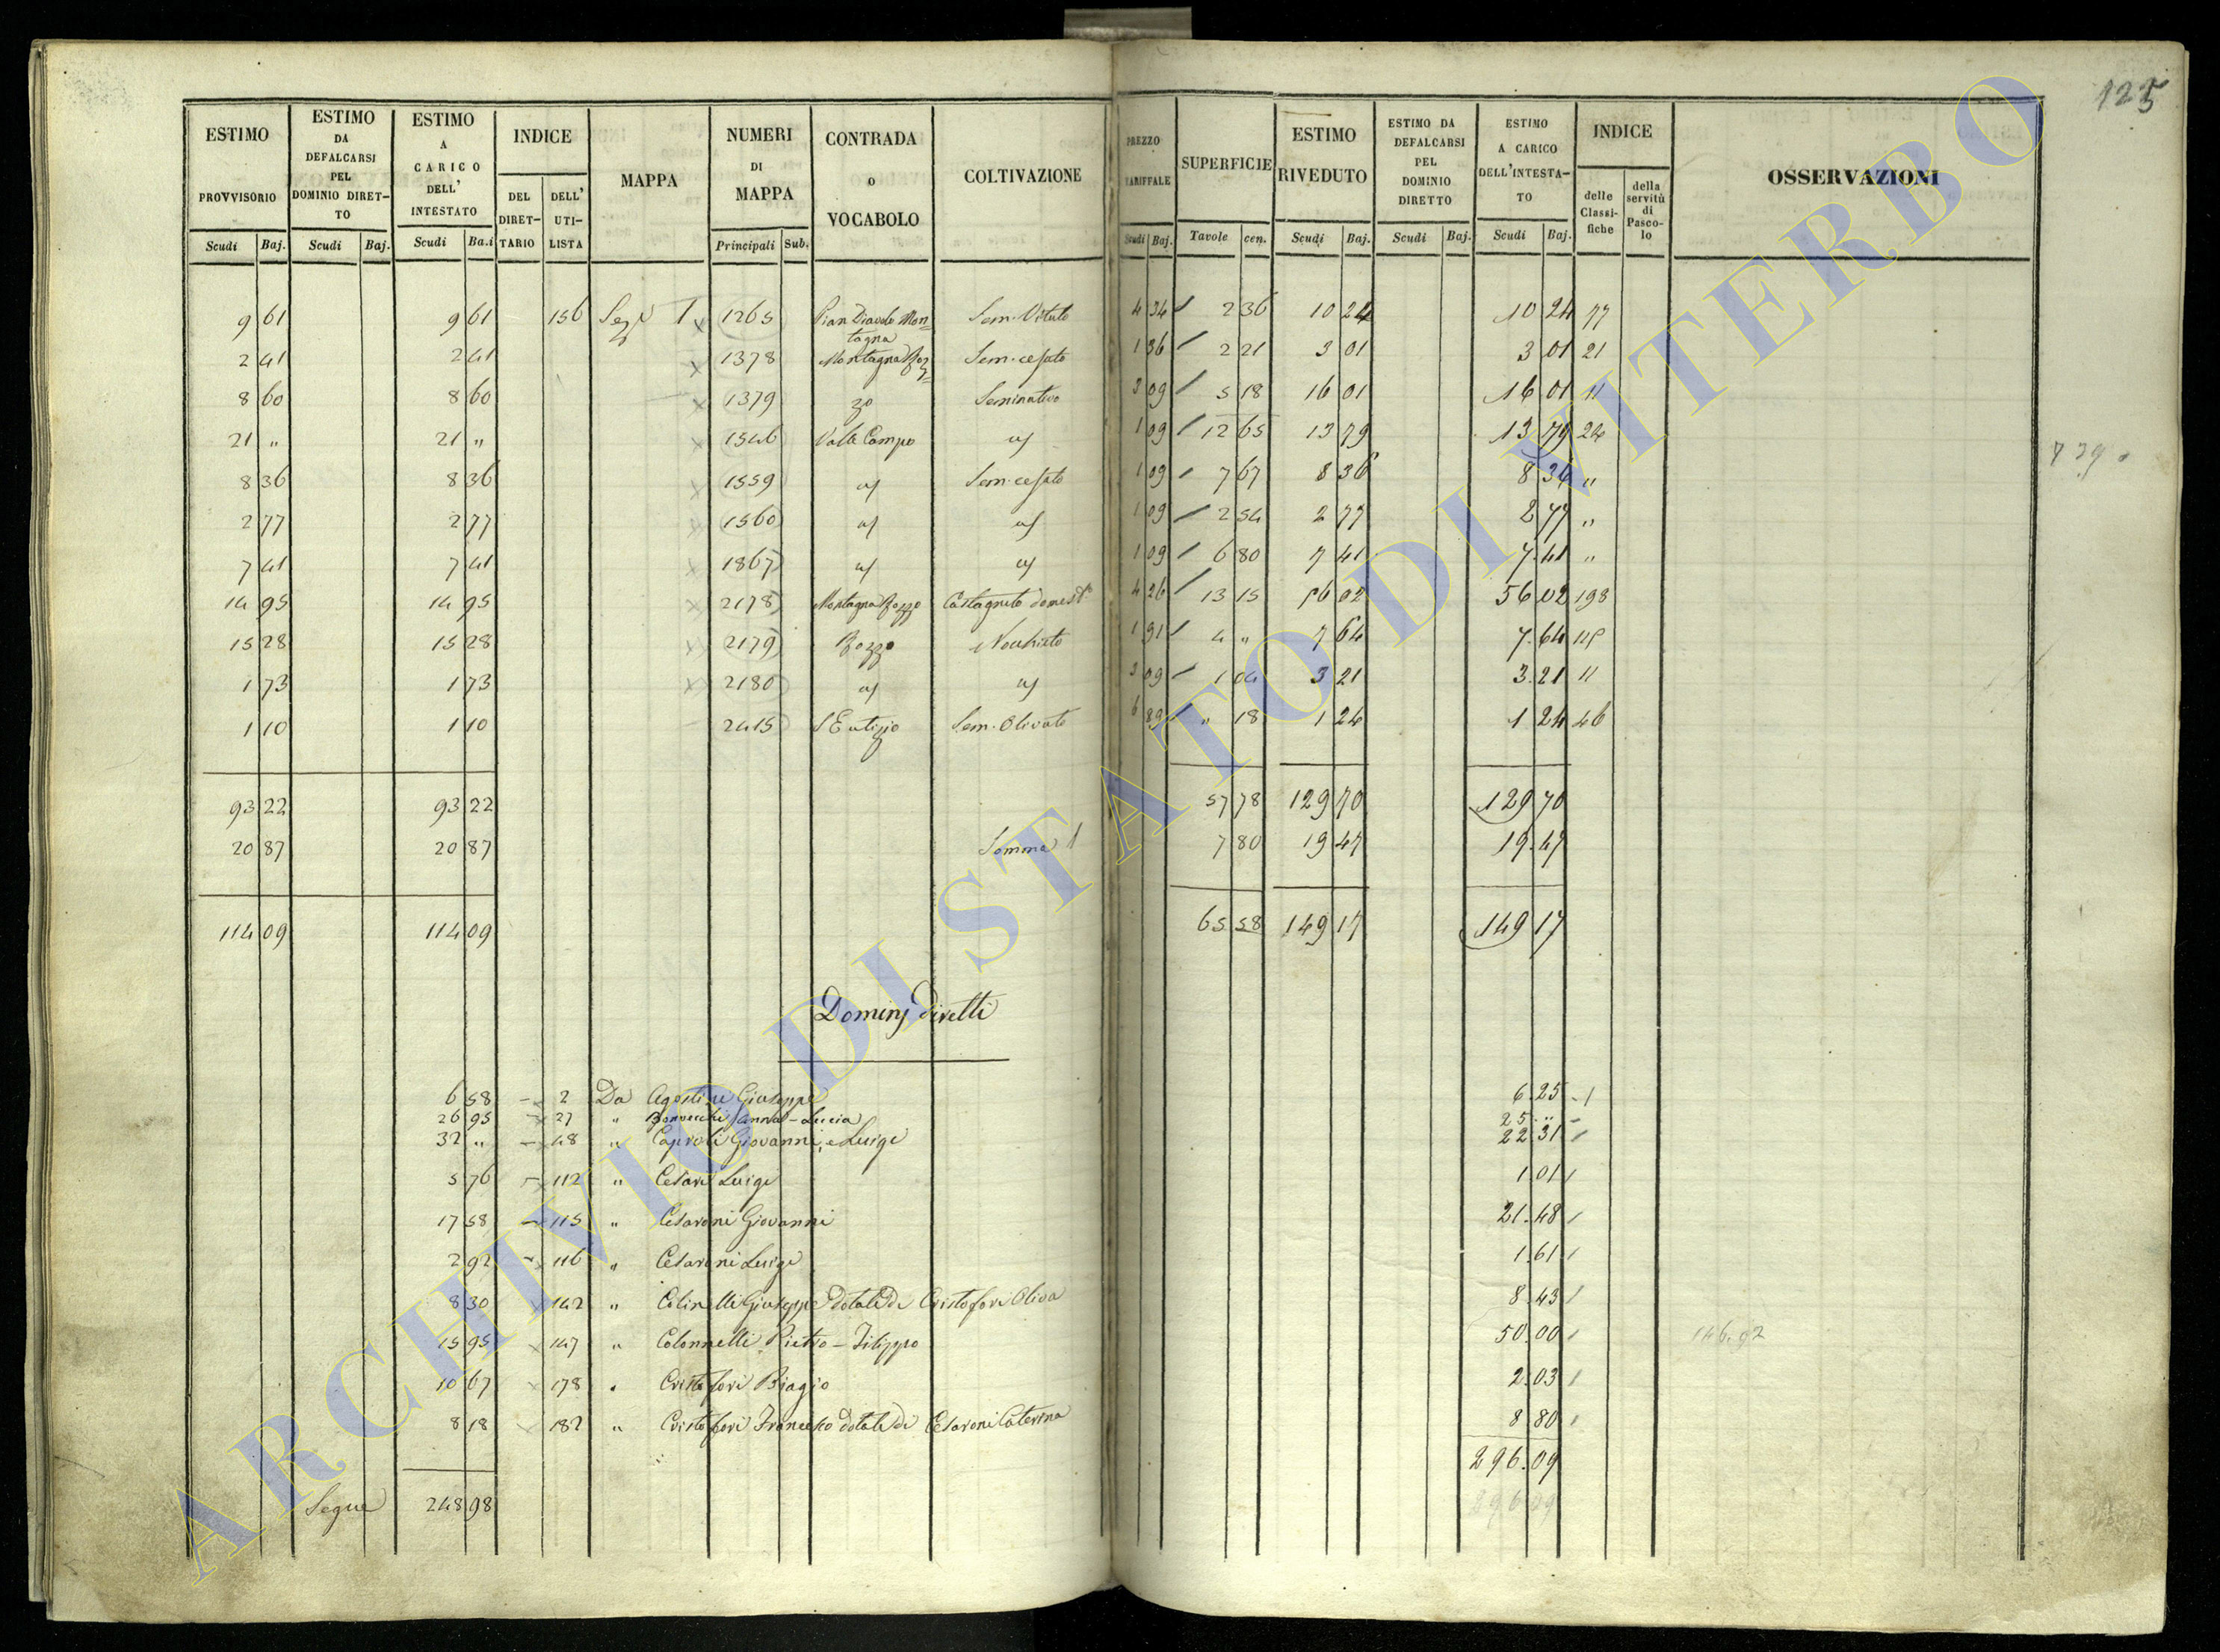 125
ESTIMO PROVVISORIO Scudi Baj. | ESTIMO DA DEFALCARSI PEL DOMINIO DIRETTO Scudi Baj. | ESTIMO A CARICO DELL' INTESTATO Scudi Ba.i | INDICE DEL DIRETTARIO DELL' UTILISTA | MAPPA | NUMERI DI MAPPA Principali Sub. | CONTRADA O VOCABOLO | COLTIVAZIONE | PREZZO TARIFFALE Scudi Baj. | SUPERFICIE Tavole cen. | ESTIMO RIVEDUTO Scudi Baj. | ESTIMO DA DEFALCARSI PEL DOMINIO DIRETTO Scudi Baj. | ESTIMO A CARICO DELL'INTESTATO Scudi Baj. | INDICE delle Classifiche della servitù di Pascolo | OSSERVAZIONI
9 61 9 61 156 Sez. I 1265 Pian Diavolo Montagna Sem. Vitato 4 34 2 36 10 24 10 24 77
2 41 2 41 1378 Montagna Roz= Sem. cesato 1 36 2 21 3 01 3 01 21
8 60 8 60 1379 zo Seminativo 3 09 5 18 16 01 16 01 11
21 " 21 " 1546 Valle Campo 1 09 12 65 13 79 13 79 24
8 36 8 36 1559 Sem. cesato 1 09 7 67 8 36 8 36 "
2 77 2 77 1560 1 09 2 54 2 77 2 77 "
7 41 7 41 1867 1 09 6 80 7 41 7 41 "
14 95 14 95 2178 Montagna Rozzo Castagneto domest. 4 26 13 15 56 02 56 02 198
15 28 15 28 2179 Rozzo Nocchieto 1 91 4 " 7 64 7 64 115
1 73 1 73 2180 3 09 1 04 3 21 3 21 11
1 10 1 10 2415 S Eutizio Sem. Olivato 6 89 " 18 1 24 1 24 46
93 22 93 22 57 78 129 70 129 70
20 87 20 87 Somma 7 80 19 47 19 47
114 09 114 09 65 58 149 17 149 17
Dominj diretti
6 58 2 Da Agostini Giuseppe 6.25
26 95 27 " Bonvecchi Anna-Lucia 25 "
32 " 48 " Caproli Giovanni, e Luigi 22.31
5 76 112 " Cesari Luigi 1.01
17 58 115 " Cesaroni Giovanni 21.48
2 92 116 " Cesaroni Luigi 1.61
8 30 142 " Colinelli Giuseppe dotale di Cristofori Oliva 8.43
15 95 147 " Colonnelli Pietro - Filippo 50.00 146.92
10 67 178 " Cristofori Biagio 2.03
8 18 182 " Cristofori Francesco dotale di Cesaroni Caterina 8.80
296.09
Segue 248 98 296 09
ARCHIVIO DI STATO DI VITERBO